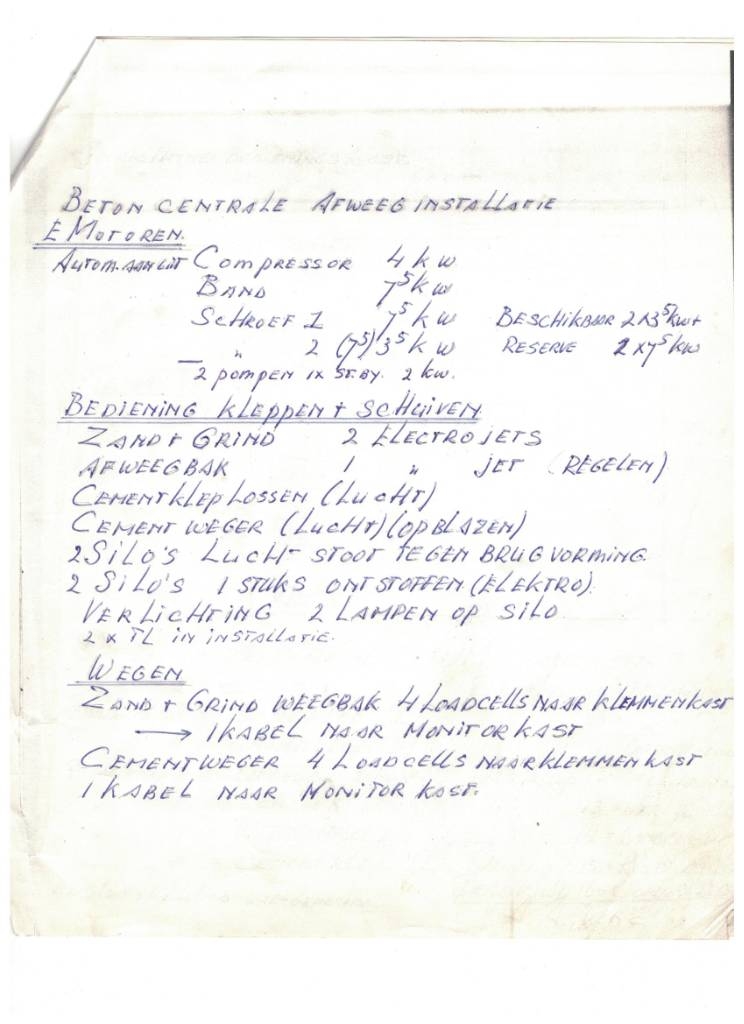 BETON CENTRALE AFWEEG INSTALLATIE
E MOTOREN.
AUTOM. AAN UIT COMPRESSOR 4 kw
BAND 7⁵ kw
SCHROEF 1 7⁵ kw BESCHIKBAAR 2 x 3⁵ kw +
" 2 (7⁵) 3⁵ kw RESERVE 2 x 7⁵ kw
— 2 pompen 1x ST.BY. 2 kw.
BEDIENING KLEPPEN + SCHUIVEN.
ZAND + GRIND 2 ELECTROJETS
AFWEEGBAK 1 " JET (REGELEN)
CEMENTKLEP LOSSEN (LUCHT)
CEMENT WEGER (LUCHT) (OPBLAZEN)
2 SILO'S LUCHT STOOT TEGEN BRUGVORMING.
2 SILO'S 1 STUKS ONTSTOFFEN (ELEKTRO).
VERLICHTING 2 LAMPEN OP SILO
2 x TL IN INSTALLATIE.
WEGEN
ZAND + GRIND WEEGBAK 4 LOADCELLS NAAR KLEMMENKAST
→ 1 KABEL NAAR MONITORKAST
CEMENTWEGER 4 LOADCELLS NAAR KLEMMENKAST
1 KABEL NAAR MONITOR KAST.